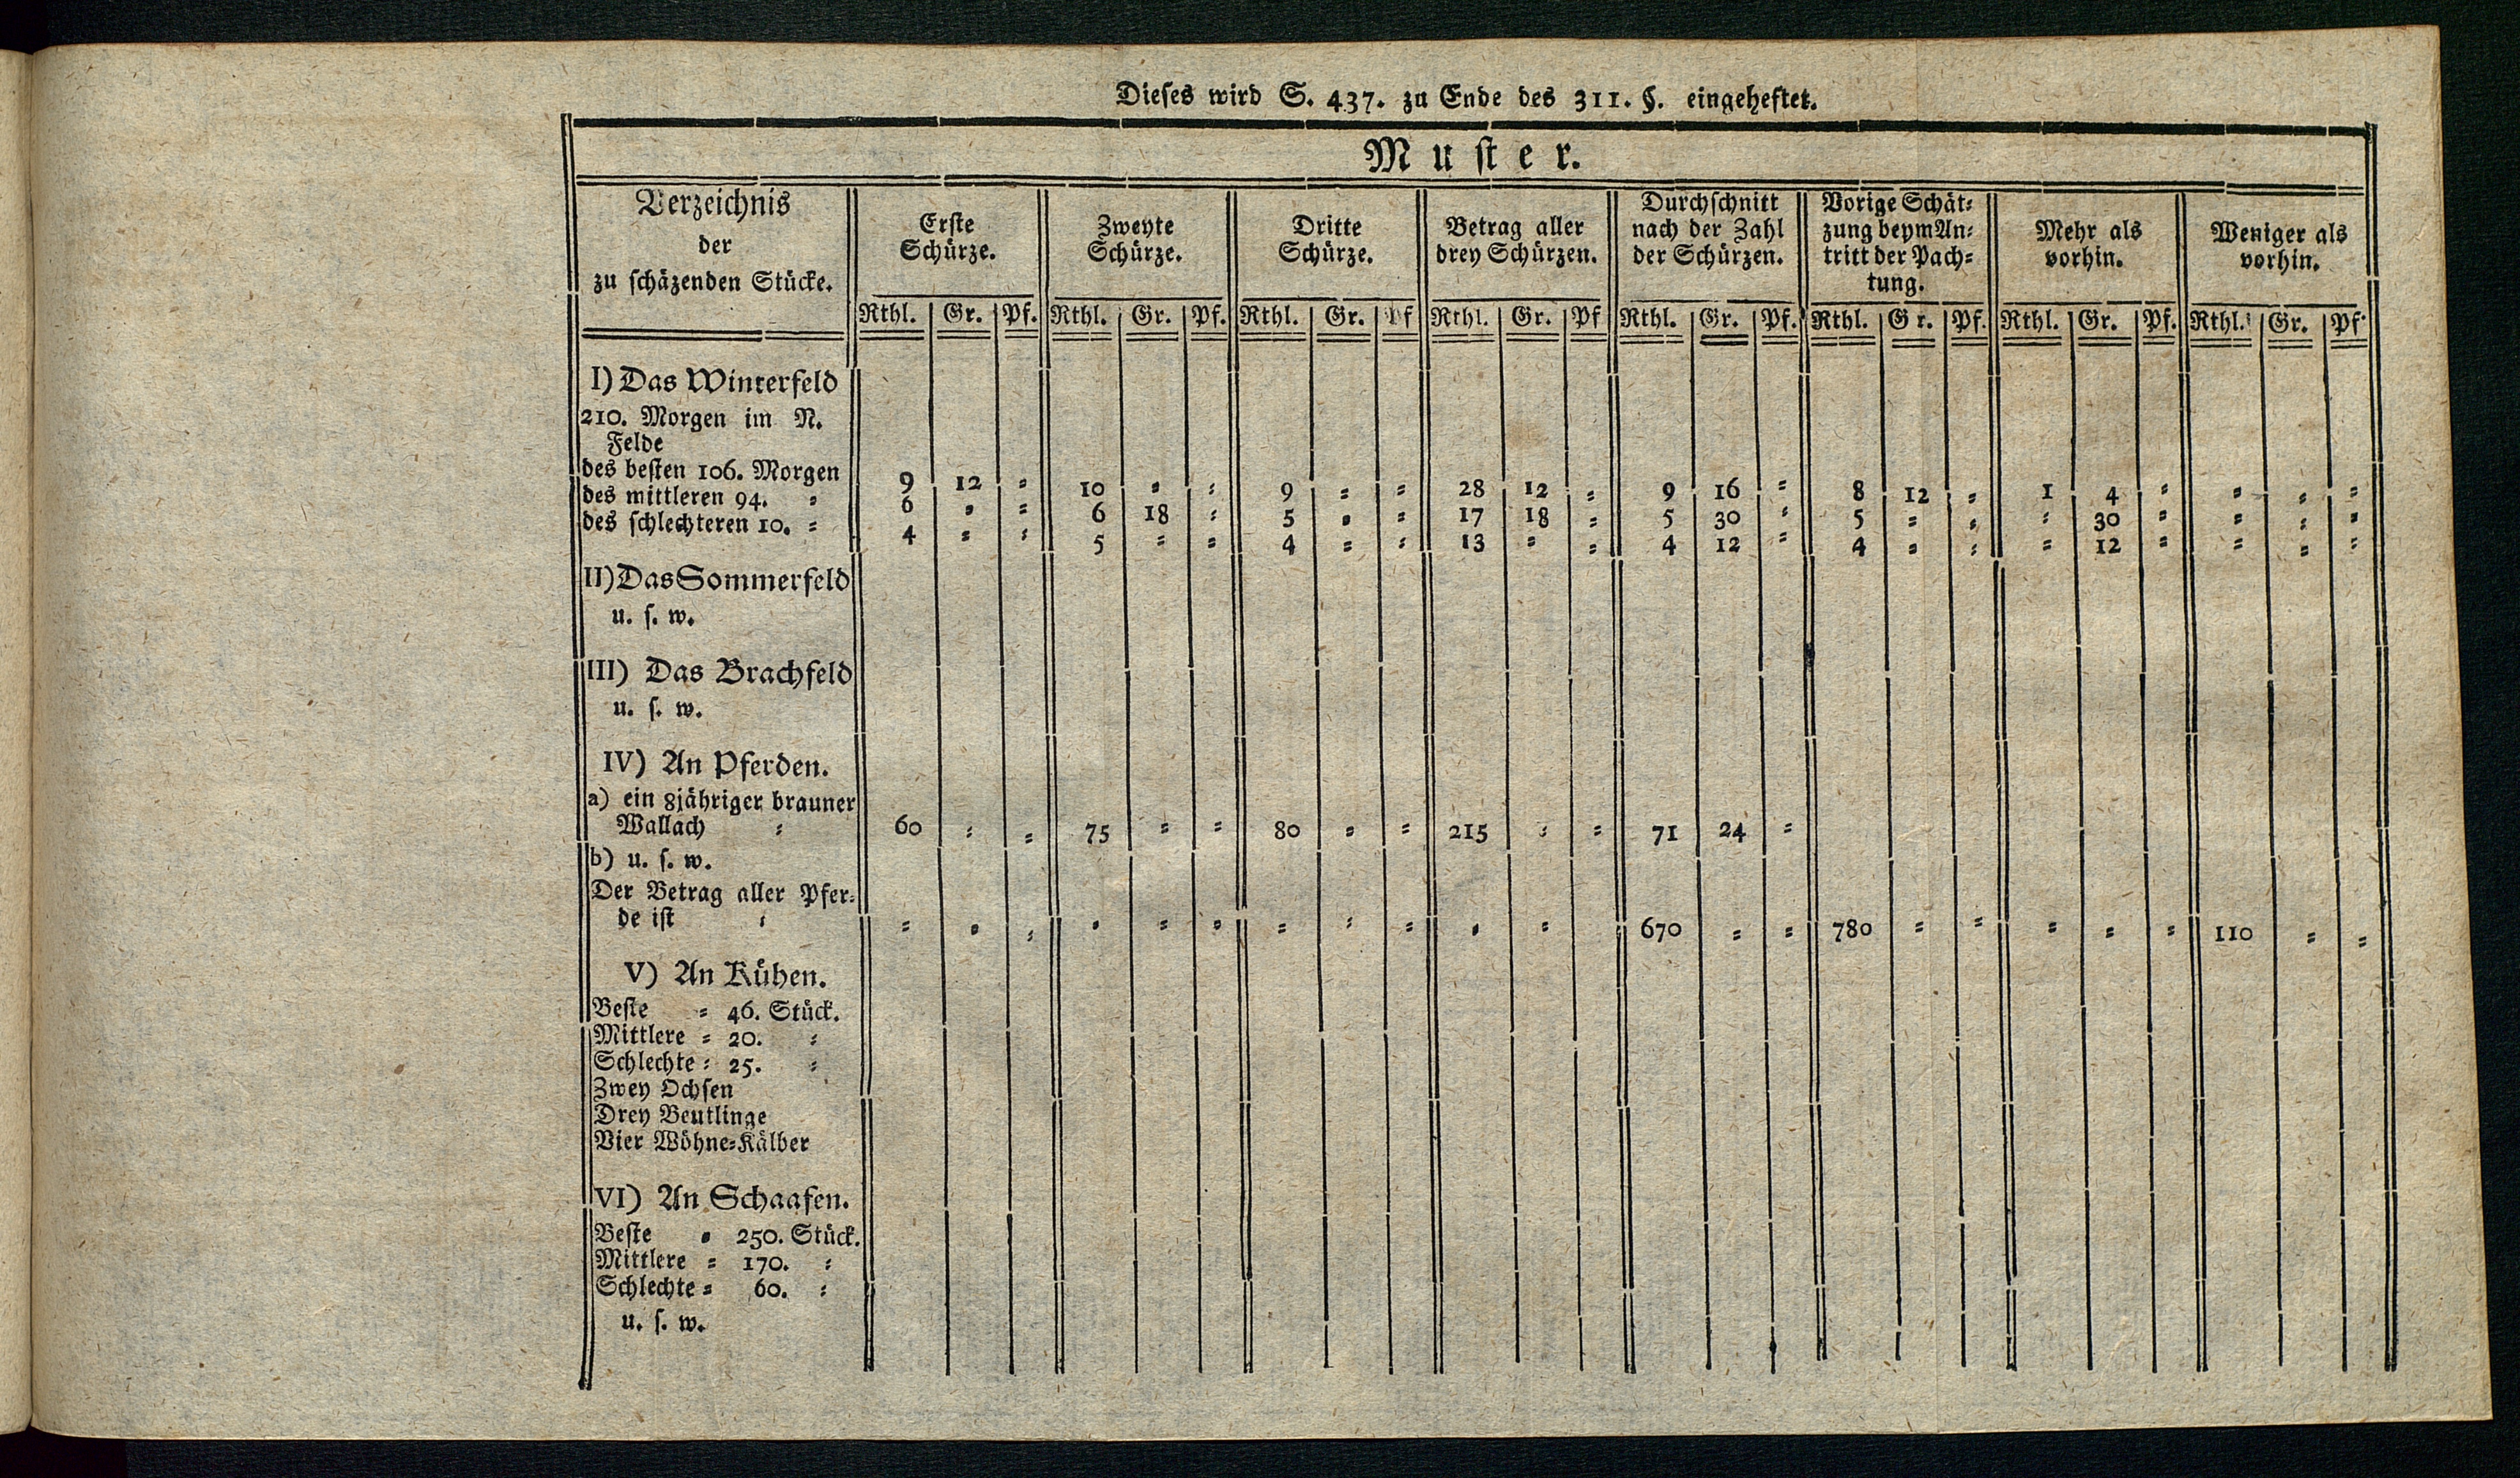 Dieses wird S. 437. zu Ende des 311. §. eingeheftet.
Muster.
Verzeichnis
der
zu schäzenden Stücke.
Erste
Schürze.
Zweyte
Schürze.
Dritte
Schürze.
Betrag aller
drey Schürzen.
Durchschnitt
nach der Zahl
der Schürzen.
Vorige Schät⸗
zung beym An⸗
tritt der Pach⸗
tung.
Mehr als
vorhin.
Weniger als
vorhin.
Rthl. Gr. Pf. Rthl. Gr. Pf. Rthl. Gr. Pf Rthl. Gr. Pf Rthl. Gr. Pf. Rthl. Gr. Pf. Rthl. Gr. Pf. Rthl. Gr. Pf.
I) Das Winterfeld
210. Morgen im N.
Felde
des besten 106. Morgen 9 12 ⸗ 10 ⸗ ⸗ 9 ⸗ ⸗ 28 12 ⸗ 9 16 ⸗ 8 12 ⸗ 1 4 ⸗ ⸗ ⸗ ⸗
des mittleren 94. ⸗ 6 ⸗ ⸗ 6 18 ⸗ 5 ⸗ ⸗ 17 18 ⸗ 5 30 ⸗ 5 ⸗ ⸗ ⸗ 30 ⸗ ⸗ ⸗ ⸗
des schlechteren 10. ⸗ 4 ⸗ ⸗ 5 ⸗ ⸗ 4 ⸗ ⸗ 13 ⸗ ⸗ 4 12 ⸗ 4 ⸗ ⸗ ⸗ 12 ⸗ ⸗ ⸗ ⸗
II) Das Sommerfeld
u. s. w.
III) Das Brachfeld
u. s. w.
IV) An Pferden.
a) ein 8jähriger brauner
Wallach ⸗ 60 ⸗ ⸗ 75 ⸗ ⸗ 80 ⸗ ⸗ 215 ⸗ ⸗ 71 24 ⸗
b) u. s. w.
Der Betrag aller Pfer⸗
de ist ⸗ ⸗ ⸗ ⸗ ⸗ ⸗ ⸗ ⸗ ⸗ ⸗ ⸗ ⸗ 670 ⸗ ⸗ 780 ⸗ ⸗ ⸗ ⸗ ⸗ 110 ⸗ ⸗
V) An Kühen.
Beste ⸗ 46. Stück.
Mittlere ⸗ 20. ⸗
Schlechte ⸗ 25. ⸗
Zwey Ochsen
Drey Beutlinge
Vier Wöhne⸗Kälber
VI) An Schaafen.
Beste ⸗ 250. Stück.
Mittlere ⸗ 170. ⸗
Schlechte ⸗ 60. ⸗
u. s. w.